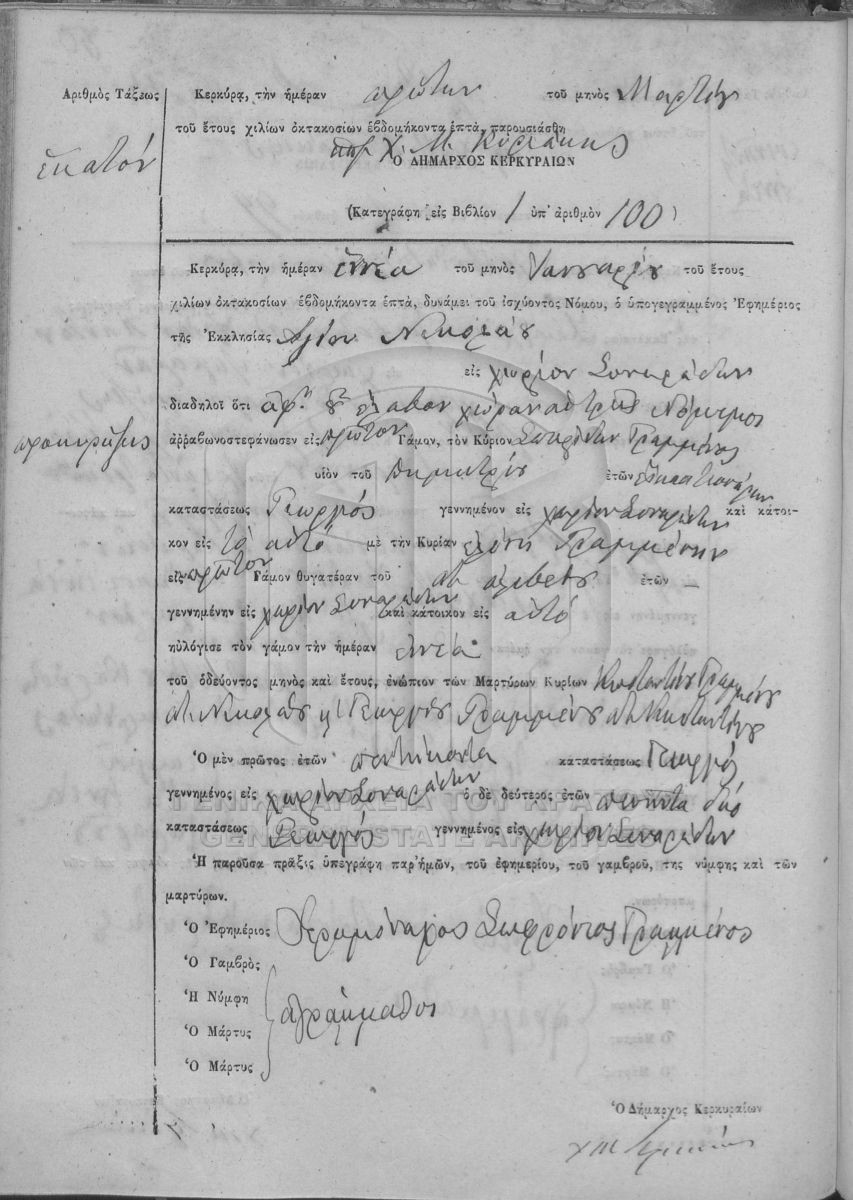 Ἀριθμὸς Τάξεως
ἑκατόν
Κερκύρᾳ, τὴν ἡμέραν πρώτην τοῦ μηνὸς Μαρτίου
τοῦ ἔτους χιλίων ὀκτακοσίων ἑβδομήκοντα ἑπτά, παρουσιάσθη
Ὁ ΔΗΜΑΡΧΟΣ ΚΕΡΚΥΡΑΙΩΝ
(Κατεγράφη εἰς Βιβλίον 1 ὑπ' ἀριθμὸν 100)
Κερκύρᾳ, τὴν ἡμέραν ἐννέα τοῦ μηνὸς Ἰανουαρίου τοῦ ἔτους
χιλίων ὀκτακοσίων ἑβδομήκοντα ἑπτά, δυνάμει τοῦ ἰσχύοντος Νόμου, ὁ ὑπογεγραμμένος Ἐφημέριος
τῆς Ἐκκλησίας Ἁγίου Νικολάου
εἰς χωρίον Συναράδων
διαδηλοῖ ὅτι ἀφ' οὗ ἔλαβον χώραν αἱ τρεῖς Νόμιμοι
προκηρύξεις
ἀρραβωνοστεφάνωσεν εἰς πρῶτον Γάμον, τὸν Κύριον Γραμμένος
υἱὸν τοῦ Δημητρίου ἐτῶν
καταστάσεως Γεωργός γεννημένον εἰς χωρίον Συναράδων καὶ κάτοι-
κον εἰς τὸ αὐτό μὲ τὴν Κυρίαν Ἑλένη Γραμμένην
εἰς πρῶτον Γάμον θυγατέραν τοῦ ἐτῶν —
γεννημένην εἰς χωρίον Συναράδων καὶ κάτοικον εἰς αὐτό
ηὐλόγισε τὸν γάμον τὴν ἡμέραν ἐννέα
τοῦ ὁδεύοντος μηνὸς καὶ ἔτους, ἐνώπιον τῶν Μαρτύρων Κυρίων Κωσταντῖνος Γραμμένος
Νικολάου Γεωργίος Γραμμένος Κωσταντίνου
Ὁ μὲν πρῶτος ἐτῶν πεντήκοντα καταστάσεως Γεωργός
γεννημένος εἰς χωρίον Συναράδων ὁ δὲ δεύτερος ἐτῶν πενήντα δύο
καταστάσεως Γεωργός γεννημένος εἰς χωρίον Συναράδων
ΓΕΝΙΚΑ ΑΡΧΕΙΑ ΤΟΥ ΚΡΑΤΟΥΣ
GENERAL STATE ARCHIVES
Ἡ παροῦσα πρᾶξις ὑπεγράφη παρ' ἡμῶν, τοῦ ἐφημερίου, τοῦ γαμβροῦ, της νύμφης καὶ τῶν
μαρτύρων.
Ὁ Ἐφημέριος Ἱερομόναχος Σωφρόνιος Γραμμένος
Ὁ Γαμβρὸς
Ἡ Νύμφη
ἀγράμματοι
Ὁ Μάρτυς
Ὁ Μάρτυς
Ὁ Δήμαρχος Κερκυραίων